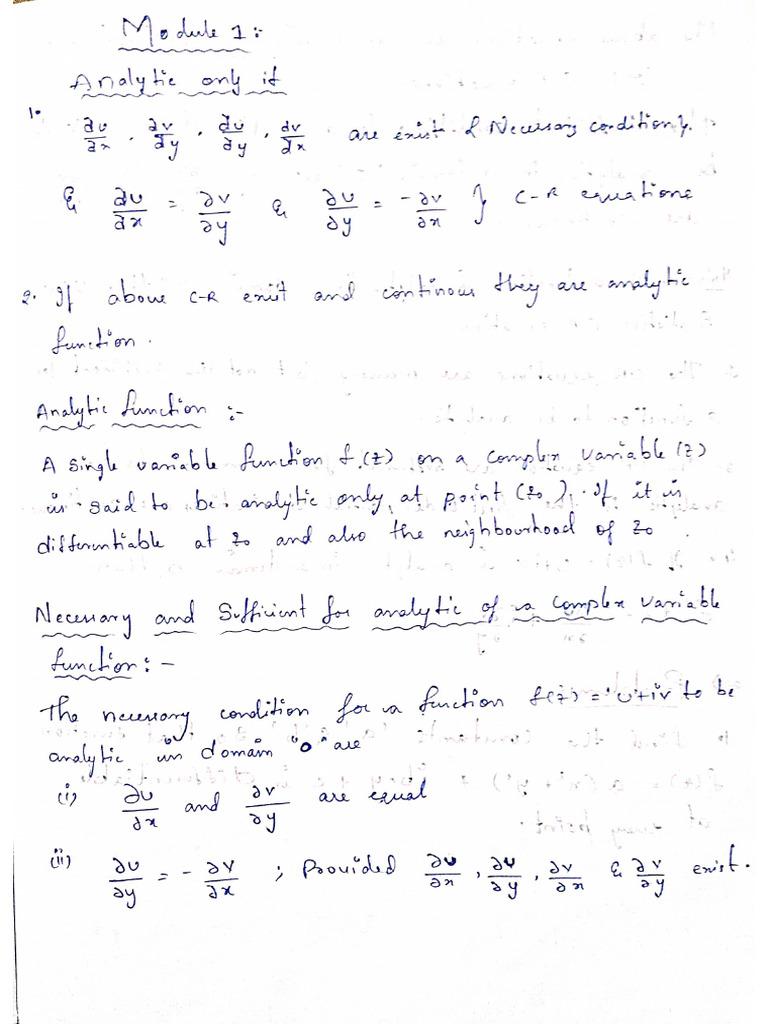 Module 1:
Analytic only if
1. ∂u/∂x, ∂v/∂y, ∂u/∂y, ∂v/∂x are exist { Necessary condition }.
& ∂u/∂x = ∂v/∂y & ∂u/∂y = -∂v/∂x } C-R equations
2. If above C-R exist and continous they are analytic
function.
Analytic function :-
A single variable function f(z) on a complex variable (z)
is said to be analytic only at point (z₀). If it is
differentiable at z₀ and also the neighbourhood of z₀.
Necessary and Sufficient for analytic of a complex variable
function :-
The necessary condition for a function f(z) = u+iv to be
analytic in domain "D" are
(i) ∂u/∂x and ∂v/∂y are equal
(ii) ∂u/∂y = -∂v/∂x ; Provided ∂u/∂x, ∂u/∂y, ∂v/∂x & ∂v/∂y exist.